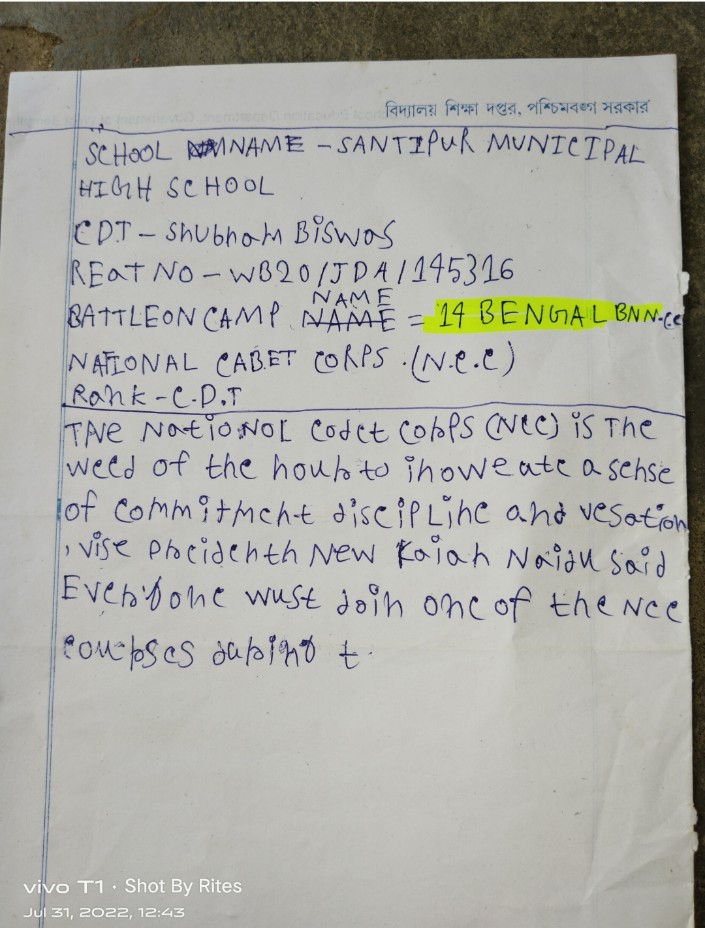 বিদ্যালয় শিক্ষা দপ্তর, পশ্চিমবঙ্গ সরকার
SCHOOL NAME - SANTIPUR MUNICIPAL
HIGH SCHOOL
CDT - Shubham Biswas
REGT NO - WB20/JDA/145316
NAME
BATTLEON CAMP NAME = 14 BENGAL BN N.CC
NATIONAL CADET CORPS. (N.C.C)
Rank - C.D.T
THe National Cadet Corps (NCC) is The
weed of the hour to inoweate a sense
of commitment discipline and vesation
, vise Precidenth New Kaiah Naidu said
Everyone wust Join one of the NCC
courses during t.
vivo T1 · Shot By Rites
Jul 31, 2022, 12:43